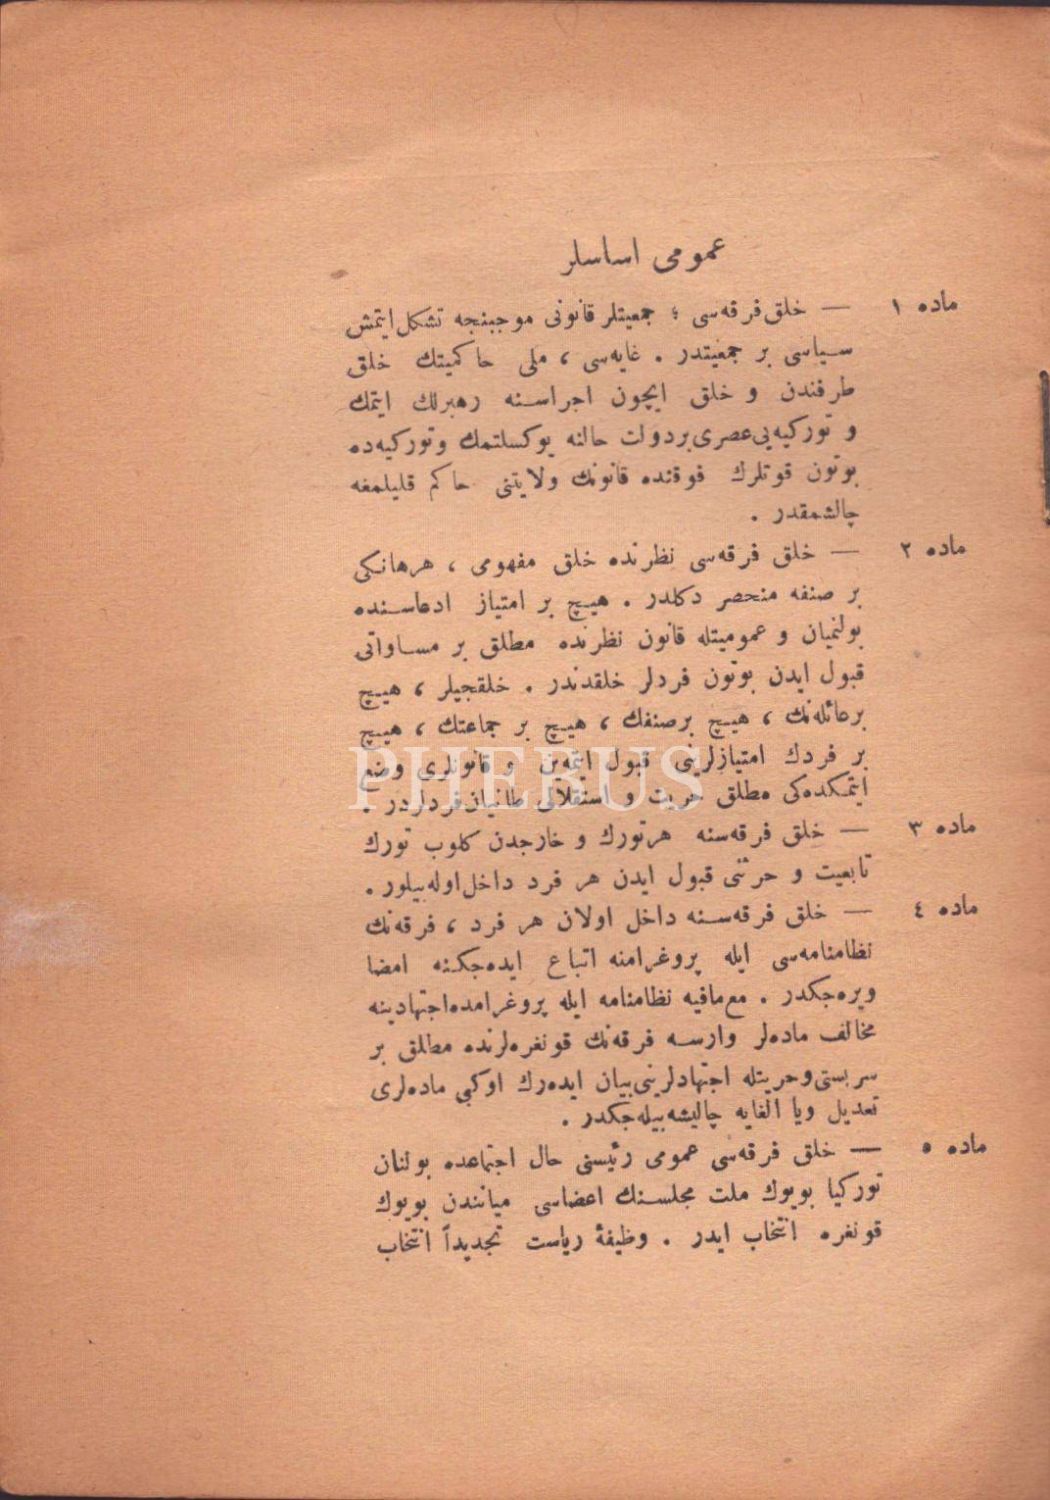 عمومی اساسلر
ماده ١ — خلق فرقه‌سی ؛ جمعیتلر قانونی موجبنجه تشكل ایتمش
سیاسی بر جمعیتدر . غایه‌سی ، ملی حاكمیتك خلق
طرفندن و خلق ایچون اجراسنه رهبرلك ایتمك
و توركیه‌یی عصری بر دولت حالنه یوكسلتمك و توركیه‌ده
بوتون قوتلرك فوقنده قانونك ولایتنی حاكم قلیلمغه
چالشمقدر .
ماده ٢ — خلق فرقه‌سی نظرنده خلق مفهومی ، هرهانكی
بر صنفه منحصر دكلدر . هیچ بر امتیاز ادعاسنده
بولنمیان و عمومیتله قانون نظرنده مطلق بر مساواتی
قبول ایدن بوتون فردلر خلقدندر . خلقجیلر ، هیچ
بر عائله‌نك ، هیچ بر صنفك ، هیچ بر جماعتك ، هیچ
بر فردك امتیازلرینی قبول ایتمه‌ین و قانونلری وضع
ایتمكده‌كی مطلق حریت و استقلالی طانیان فردلردر .
ماده ٣ — خلق فرقه‌سنه هر تورك و خارجدن كلوب تورك
تابعیت و حرثنی قبول ایدن هر فرد داخل اوله‌بیلور .
ماده ٤ — خلق فرقه‌سنه داخل اولان هر فرد ، فرقه‌نك
نظامنامه‌سی ایله پروغرامنه اتباع ایده‌جكنه امضا
ویره‌جكدر . مع‌مافیه نظامنامه ایله پروغرامده اجتهادینه
مخالف ماده‌لر وارسه فرقه‌نك قونغره‌لرنده مطلق بر
سربستی و حریتله اجتهادلرینی بیان ایده‌رك او كبی ماده‌لری
تعدیل ویا الغایه چالیشه‌بیله‌جكدر .
ماده ٥ — خلق فرقه‌سی عمومی رئیسنی حال اجتماعده بولنان
توركیا بویوك ملت مجلسنك اعضاسی میانندن بویوك
قونغره انتخاب ایدر . وظیفهٔ ریاست تجدیداً انتخاب
PHEBUS